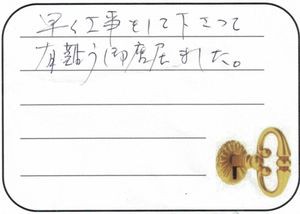 早く工事をして下さって
有難う御座居ました。